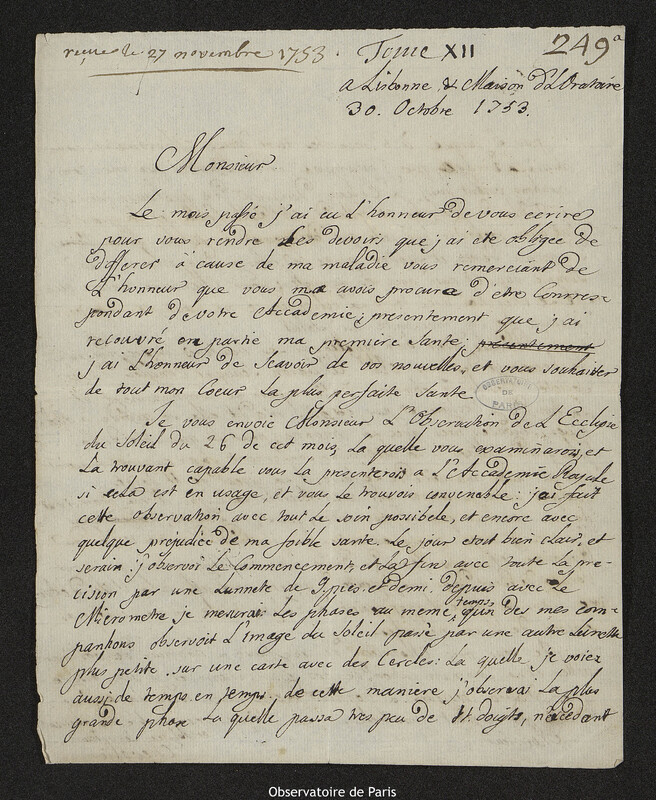 reçue le 27 novembre 1753. Tome XII 249a
a Lisbonne, & Maison d'LOratoire
30. Octobre 1753.
Monsieur
Le mois passé j'ai eu L'honneur de vous ecrire
pour vous rendre Les devoirs que j'ai eté obligée de
differer à cause de ma maladie vous remerciant de
L'honneur que vous ma avois procura d'etre Corres-
pondant de votre Accademie; presentement que j'ai
recouvré en partie ma premiere santé; presentement
j'ai L'honneur de Scavoir de vos nouvelles, et vous souhaiter
de tout mon Coeur La plus perfaite Santé.
OBSERVATOIRE DE PARIS
Je vous envoie Monsieur L'Observation de L'Ecclipse
du Soleil du 26 de cet mois, La quelle vous examinarois, et
La trouvant capable vous La presenterois a L'Accademie Royale
si cela est en usage, et vous Le trouvois convenable: j'ai fait
cette observation avec tout Le soin possibele, et encore avec
quelque prejudice de ma foible santé. Le jour etoit bien clair, et
serain: j'observoi Le Commencement, et La fin avec toute La pre-
cision par une Lunnete de 9. pies, et demi: depuis avec Le
Micrometre je mesurai Les phases au meme temps, qu'un des mes com-
panhons observoit L'image du Soleil passé par une autre Lunette
plus petite sur une carte avec des Cercles: La quelle je voiez
aussi de temps en temps. de cette maniére j'observai La plus
grande phase La quelle passa tres peu de 11. doigts, n'excedant
Observatoire de Paris